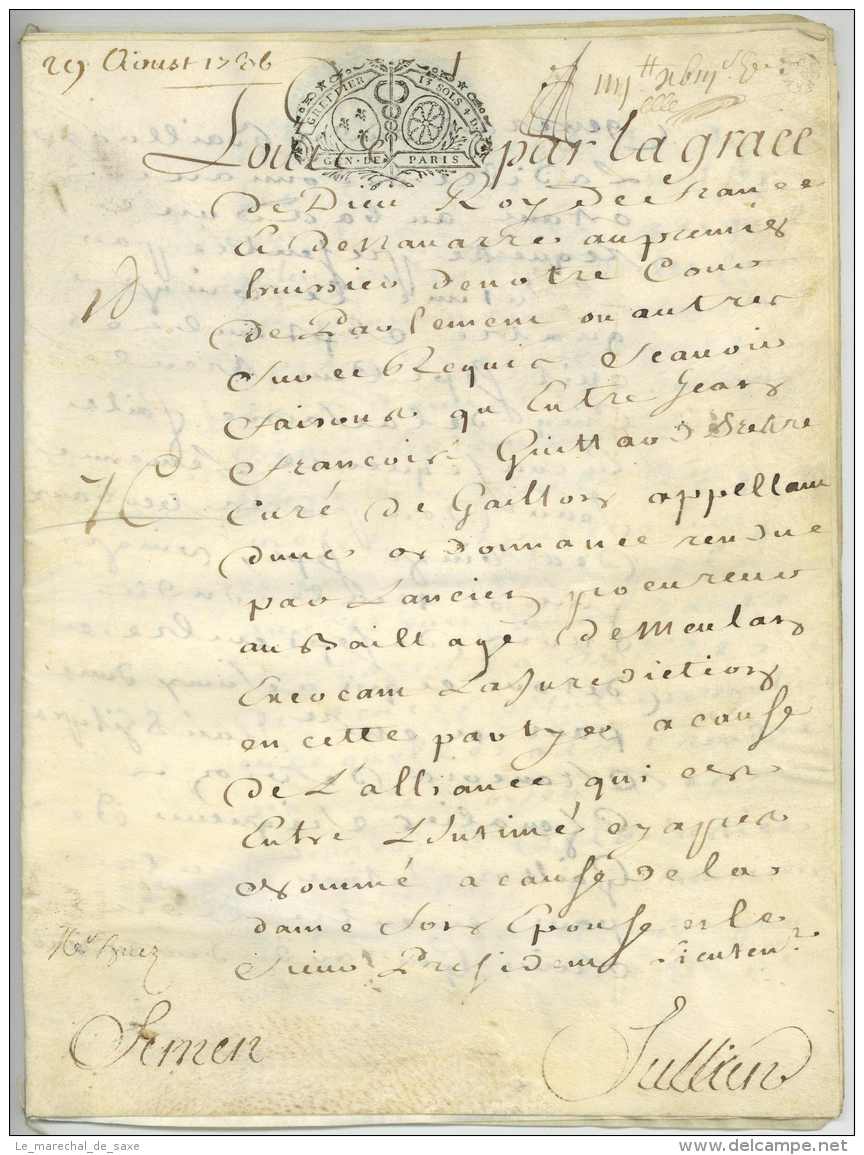 29 Aioust 1736
GREFFIER 13 SOLS 4 D
GEN. DE PARIS
Louis par la grace
de Dieu Roy de france
Et de Navarre au premier
huissier de notre Cour
de Parlement ou autre
Sur ce Requis Scavoir
faisons qu Entre Jean
francois Guittard Prestre
Curé de Gaillon appellant
dune ordonnance rendue
par Lancien procureur
au Baillage de Meulan
Exercant La Jurediction
en cette partye a cause
de L'alliance qui est
Entre L Intimé cy apres
nommé a cause de la
dame Son Epouse et le
Sieur President Lieuten.t
Semen
Jullien
Le_marechal_de_saxe
delcampe.net